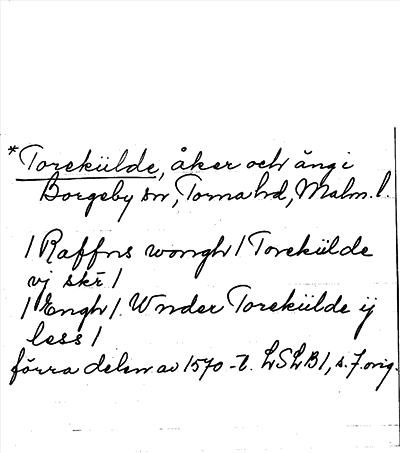 *Torekülde, åker och äng i
Borgeby sn, Torna hd, Malm. l.
/ Raffns wongh / Torekülde
vj skr̄ /
/ Engh / Wnder Torekülde ij
less /
förra delen av 1570-t. LSLB 1, s. 7. orig.